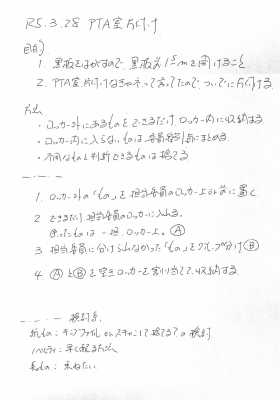 R5.3.28 PTA室片付け
目的)
1. 黒板をはがすので、黒板前1.5mを開けること
2. PTA室片付けなきゃネって言ってたので、ついでに片付ける
方法
・ロッカー外にあるものをできるだけロッカー内に収納する。
・ロッカー内に入らないものは、委員会別にまとめる。
・不用なものと判断できるものは捨てる
1. ロッカー外の「もの」を担当委員のロッカー上か前に置く
2. できるだけ担当委員のロッカーに入れる。
余ったものは一旦、ロッカー上。Ⓐ
3 担当委員に分けられなかった「もの」をグループ分けⒷ
4. ⒶとⒷを空きロッカーを割り当てて、収納する。
検討系.
紙もの: キングファイル or スキャンして捨てるで、の検討.
ノベルティ: 早く配る方法
長もの: 束ねたい.